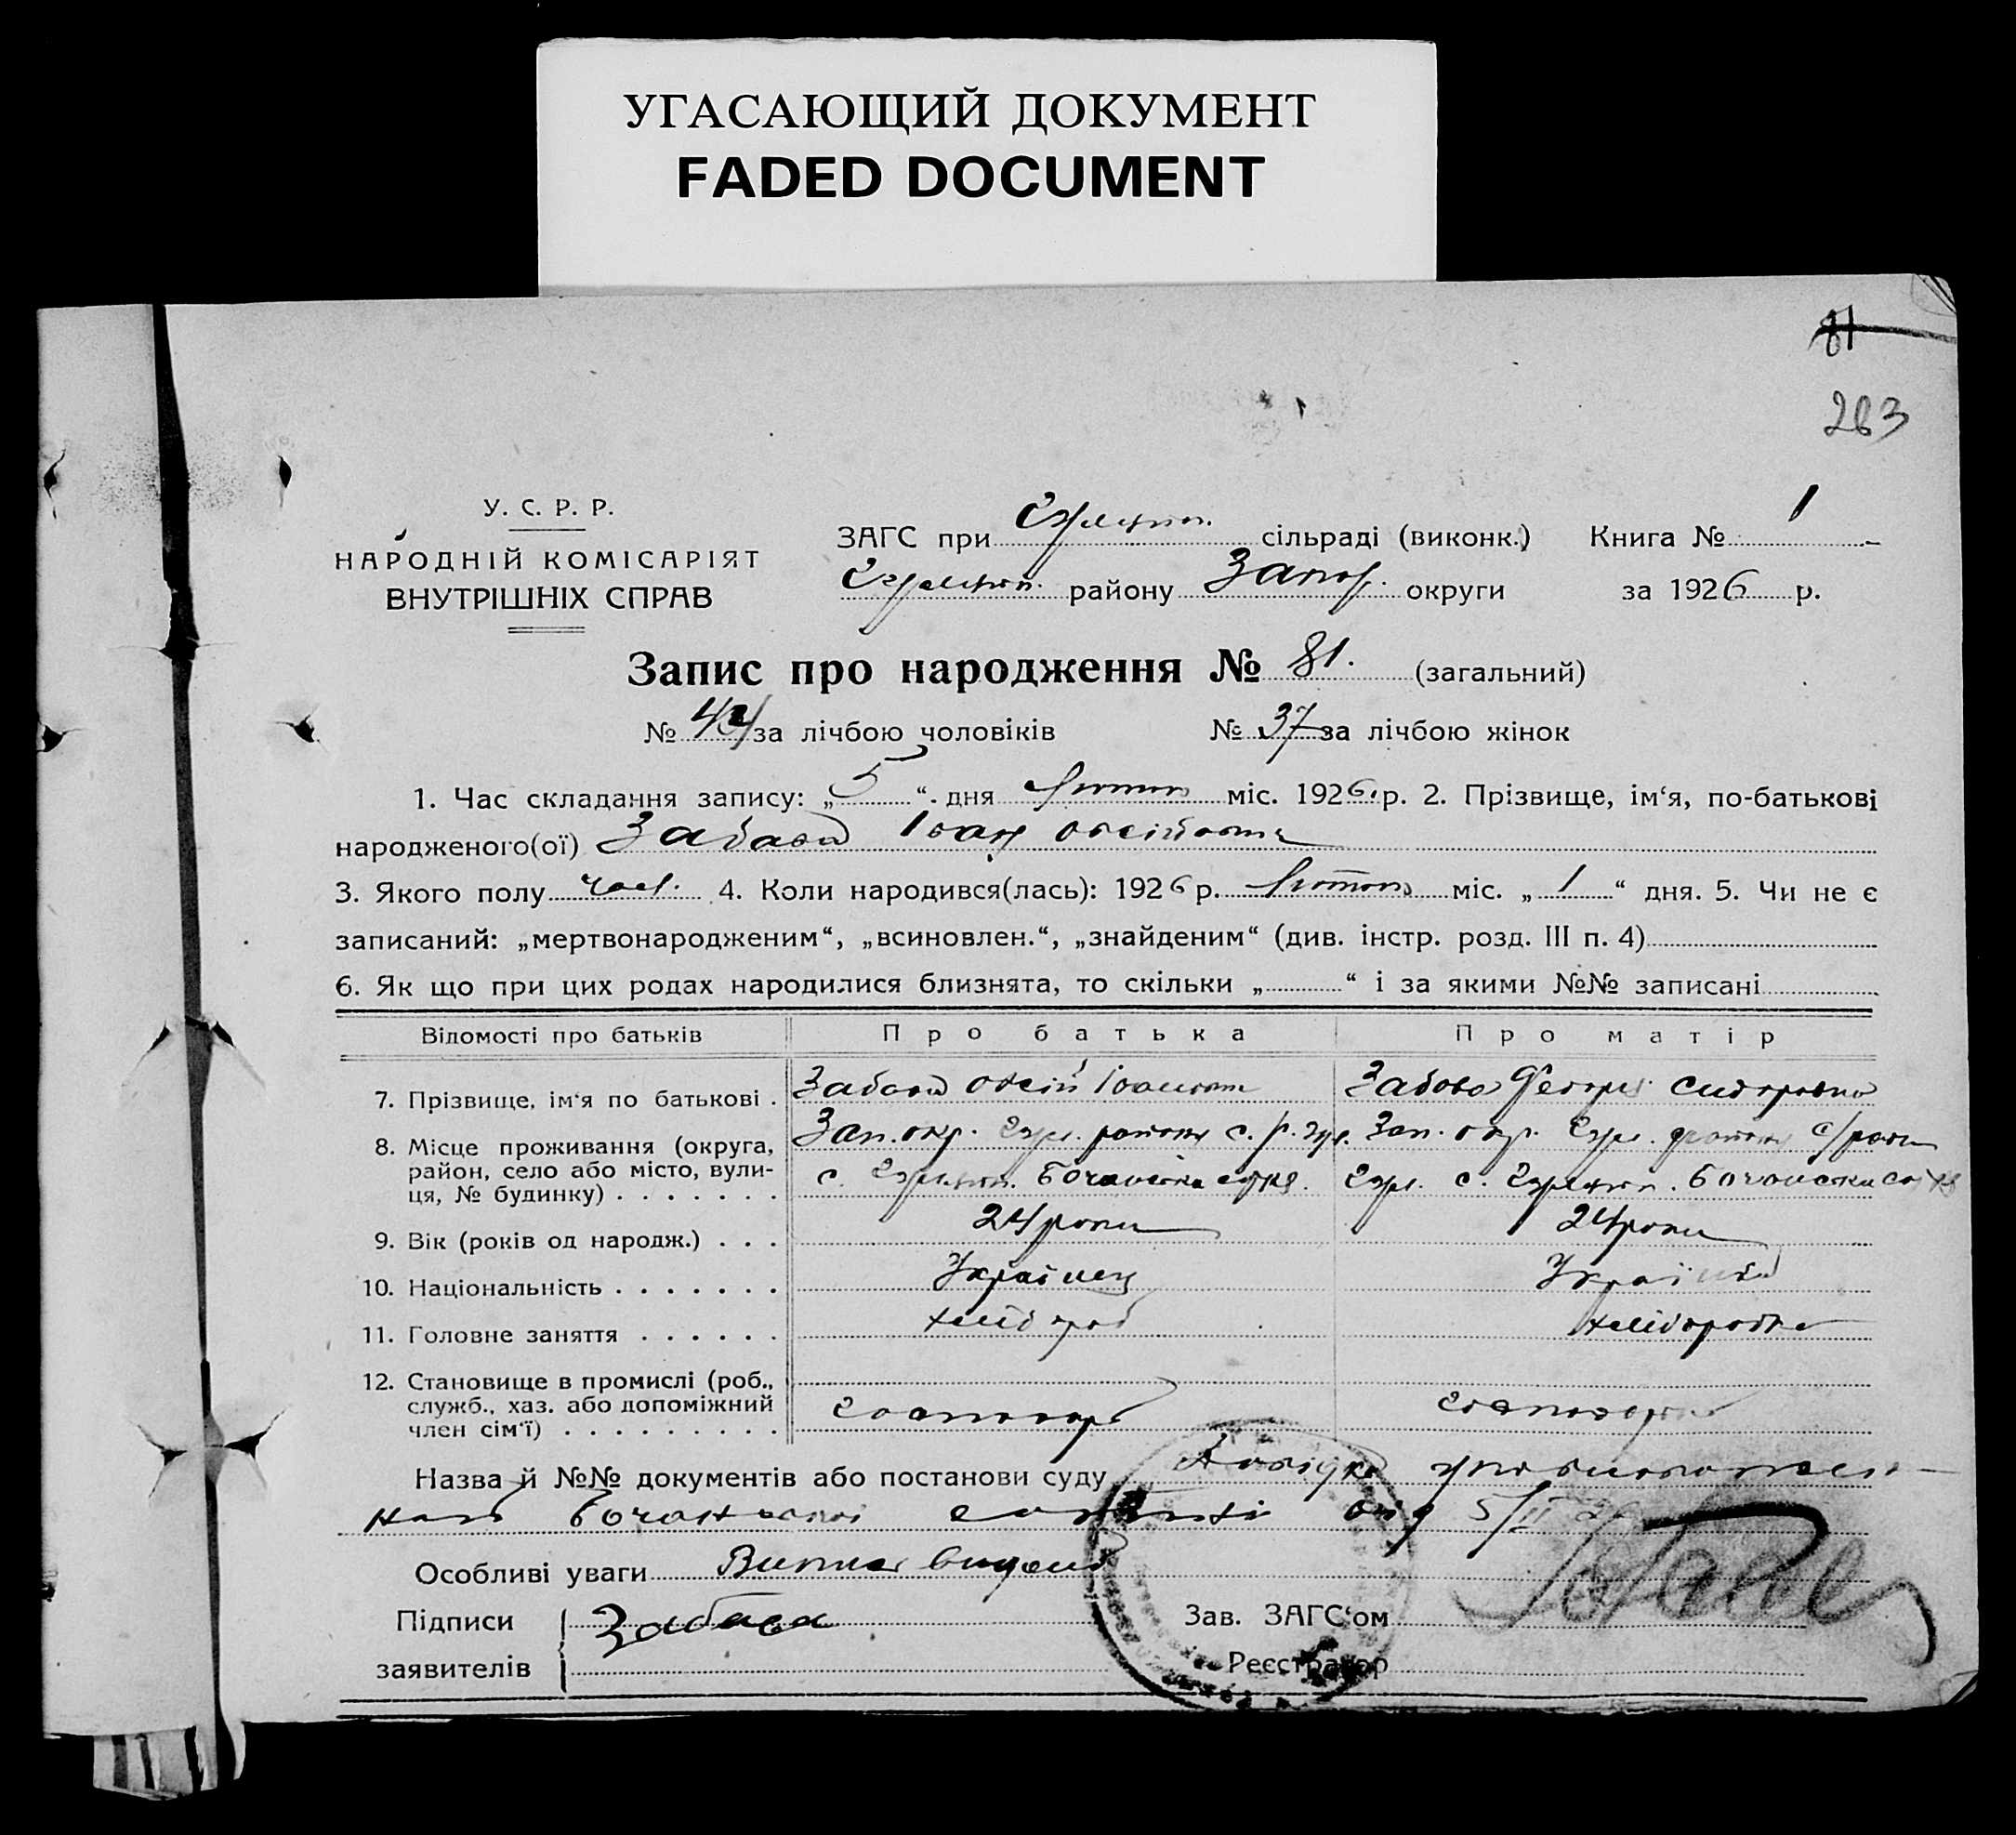 УГАСАЮЩИЙ ДОКУМЕНТ
FADED DOCUMENT
81
263
У. С. Р. Р.
НАРОДНІЙ КОМІСАРІЯТ
ВНУТРІШНІХ СПРАВ
ЗАГС при сільраді (виконк.) Книга № 1
району Запор. округи за 1926 р.
Запис про народження № 81. (загальний)
№ 44 за лічбою чоловіків № 37 за лічбою жінок
1. Час складання запису: „5“ дня лютого міс. 1926 р. 2. Прізвище, ім‘я, по-батькові
народженого(ої) Забава Іван Овсійович
3. Якого полу чол. 4. Коли народився(лась): 1926 р. лютого міс. „1“ дня. 5. Чи не є
записаний: „мертвонародженим“, „всиновлен.“, „знайденим“ (див. інстр. розд. III п. 4)
6. Як що при цих родах народилися близнята, то скільки „ “ і за якими №№ записані
Відомості про батьків Про батька Про матір
7. Прізвище, ім‘я по батькові . Забава Овсій Іванович Забава Сидоровна
8. Місце проживання (округа, Зап. окр. району Зап. окр. району
район, село або місто, вули-
ця, № будинку) . . . . . . . с. с.
9. Вік (років од народж.) . . . 24 роки 24 роки
10. Національність . . . . . . . Українец Українка
11. Головне заняття . . . . . . хлібороб хліборобка
12. Становище в промислі (роб.,
служб., хаз. або допоміжний господарь
член сім‘ї) . . . . . . . . .
Назва й №№ документів або постанови суду Довідка уповноваже-
ного сотні від 5/II 26
Особливі уваги Витяг видано
Підписи Забава Зав. ЗАГС‘ом
заявителів Реєстратор